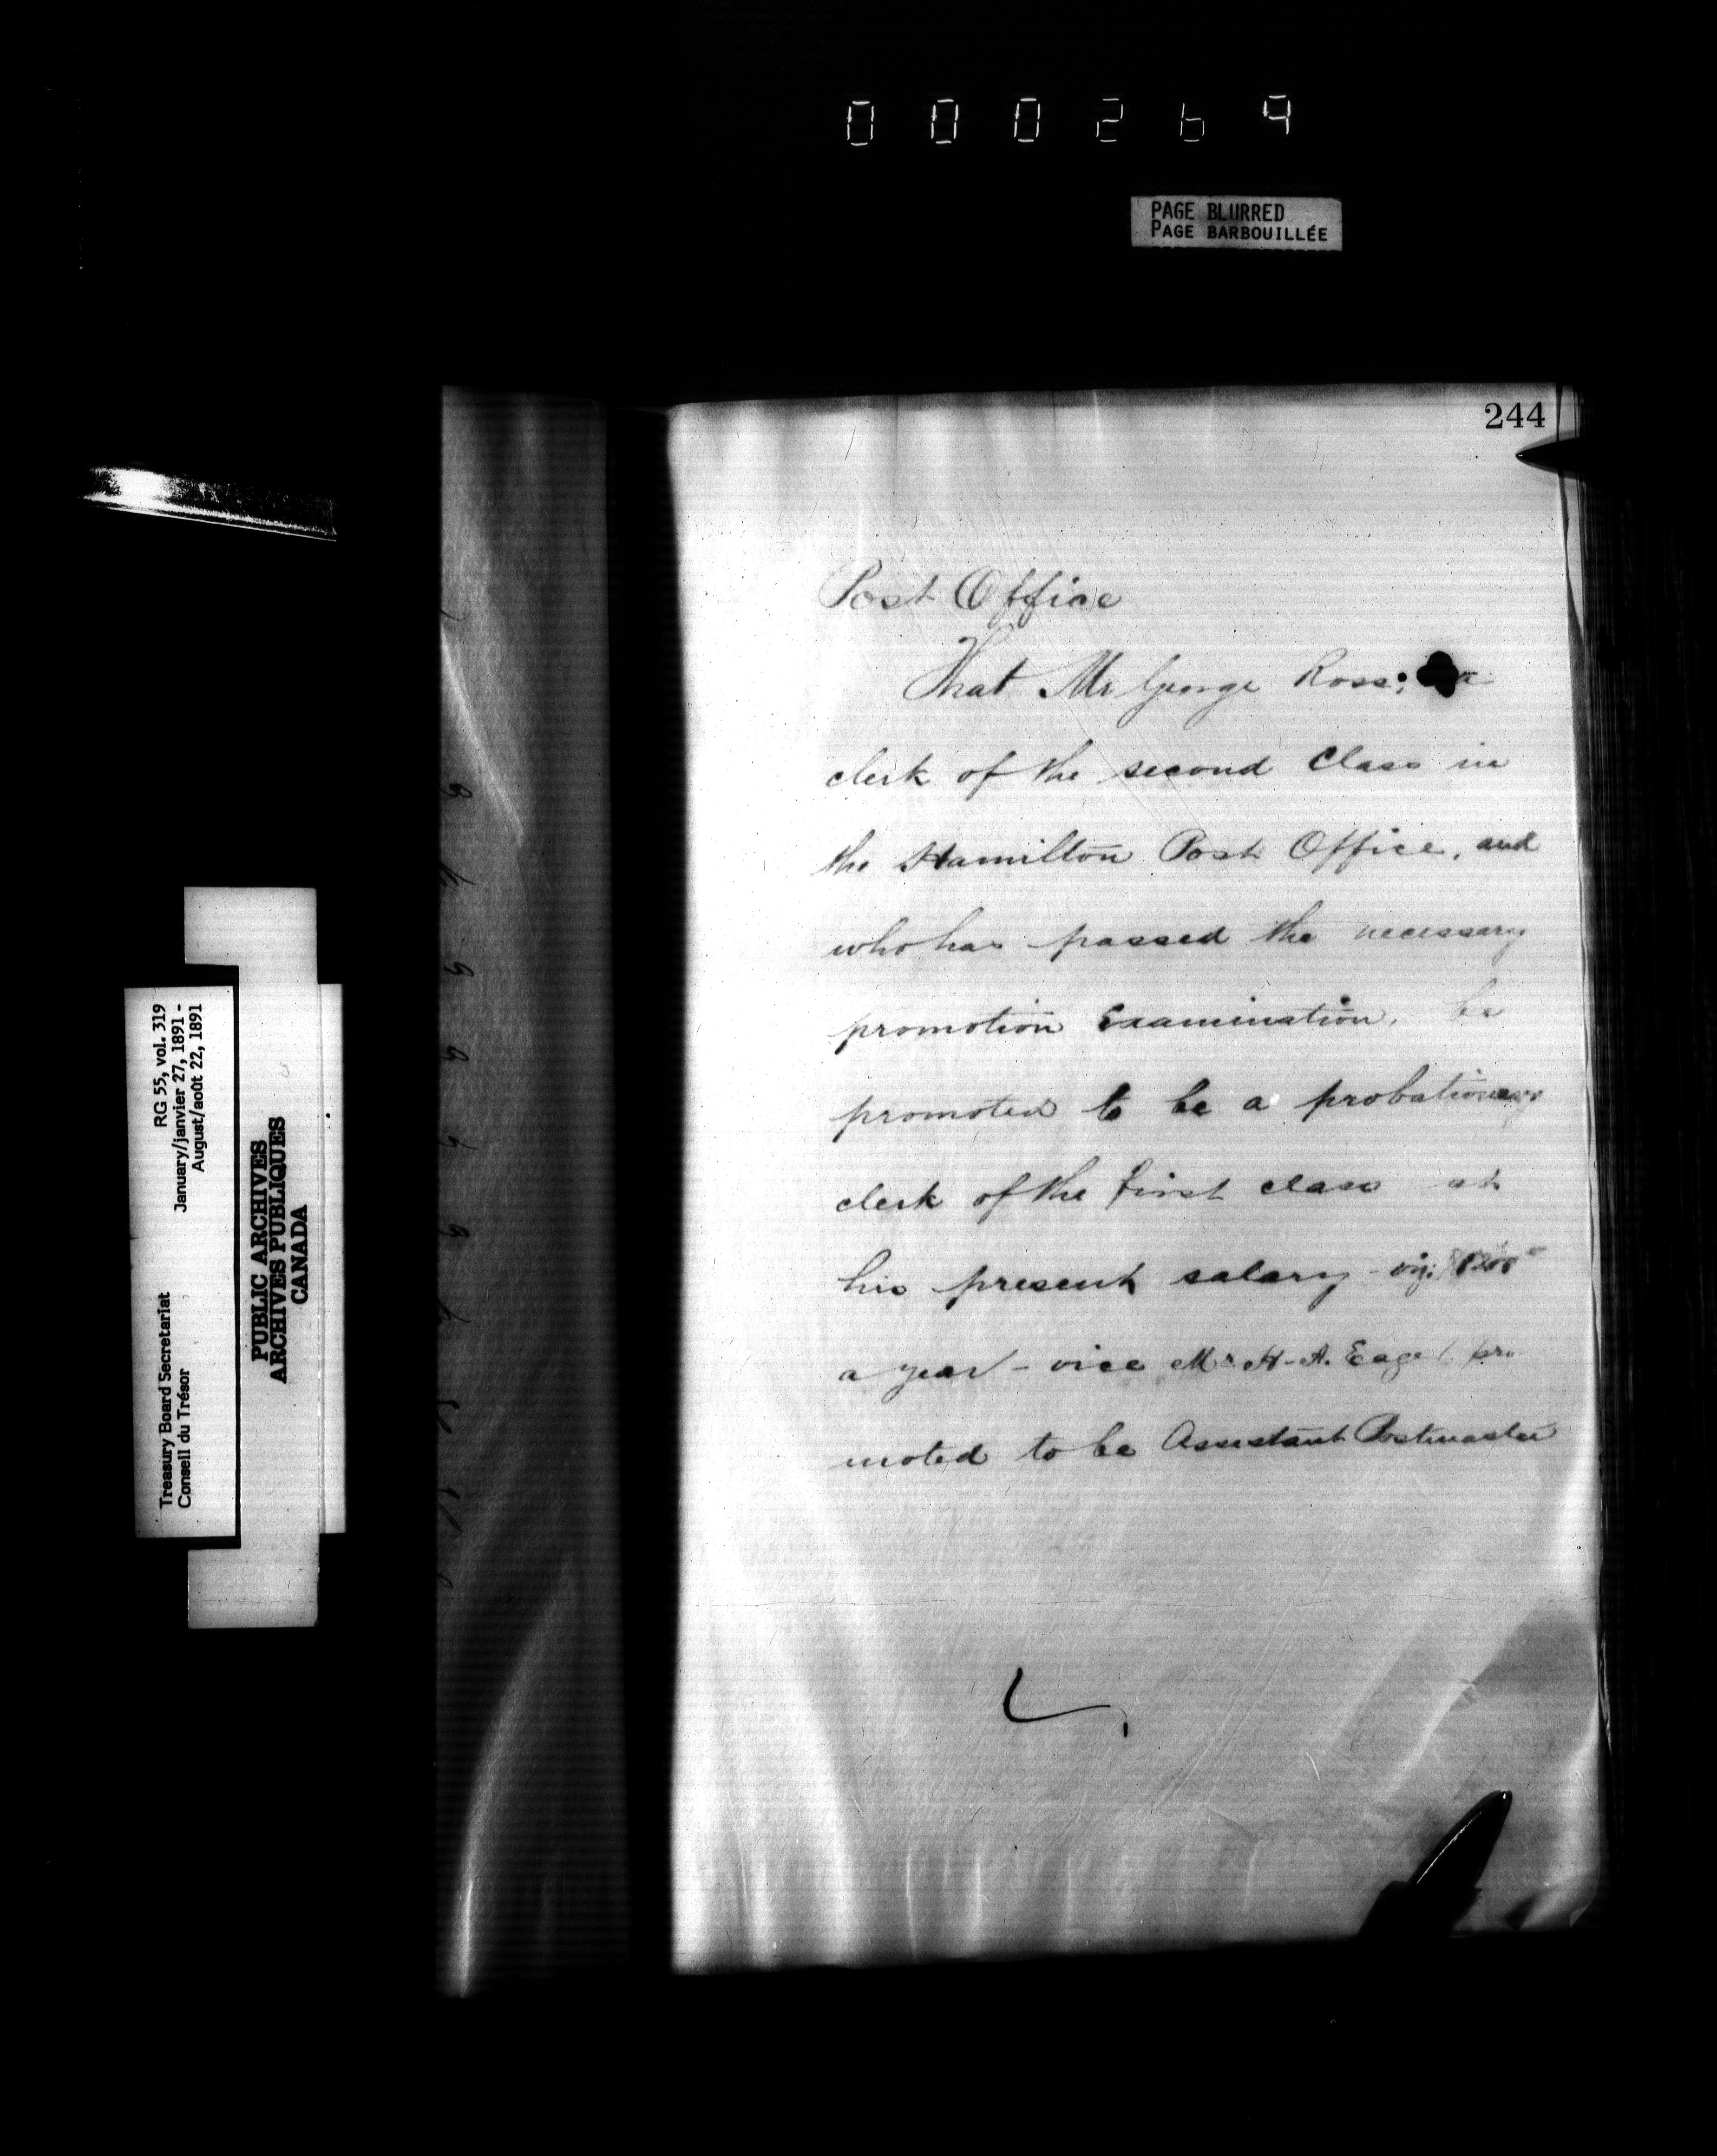 000269
PAGE BLURRED
PAGE BARBOUILLÉE
244
Post Office
That Mr George Ross, a
clerk of the second Class in
the Hamilton Post Office, and
who has passed the necessary
promotion Examination, be
promoted to be a probationary
clerk of the first class at
his present salary - viz: $1200
a year - vice Mr H. A. Eager pro
moted to be Assistant Postmaster
RG 55, vol. 319
January/janvier 27, 1891 -
August/août 22, 1891
Treasury Board Secretariat
Conseil du Trésor
PUBLIC ARCHIVES
ARCHIVES PUBLIQUES
CANADA